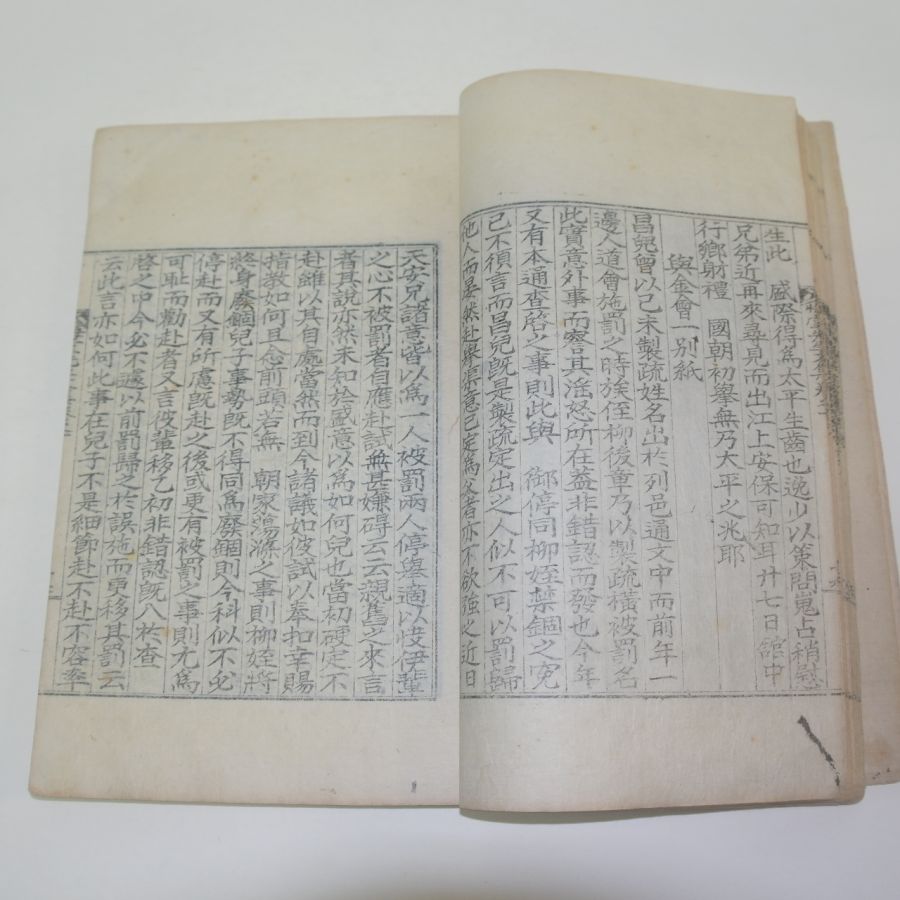 生此　盛際得爲太平生齒也逸少以策問嵬占稍慰
兄弟近再來尋見而出江上安保可知耳廾七日舘中
行鄕射禮　國朝初擧無乃大平之兆耶
與金會一別紙
昌兒曾以己未製疏姓名出於列邑通文中而前年一
邊人道會施罰之時族侄柳後章乃以製疏橫被罰名
此實意外事而察其淫怒所在盖非錯認而發也今年
又有本道查啓之事則此與　御停同柳姪禁錮之寃
已不須言而昌兒旣是製疏定出之人似不可以罰歸
他人而晏然赴擧渠意已定爲父者亦不欲強之近日
天安兄諸意皆以爲一人被罰兩人停擧適以快伊輩
之心不被罰者自應赴試無甚嫌碍云云親舊之來言
者其說亦然未知於盛意以爲如何兒也當初硬定不
赴雖以其自處當然而到今諸議如彼試以奉扣幸賜
指敎如何且念前頭若無　朝家蕩滌之事則柳姪將
終身廢錮兒子事勢旣不得同爲廢錮則今科似不必
停赴而又有所慮旣赴之後或更有被罰之事則尤爲
可耻而勸赴者又言彼輩移乙初非錯認旣入於查
啓之中今必不遽以前罰歸之於誤施而更移其罰云
云此言亦如何此事在兒子不是細節赴不赴不容率